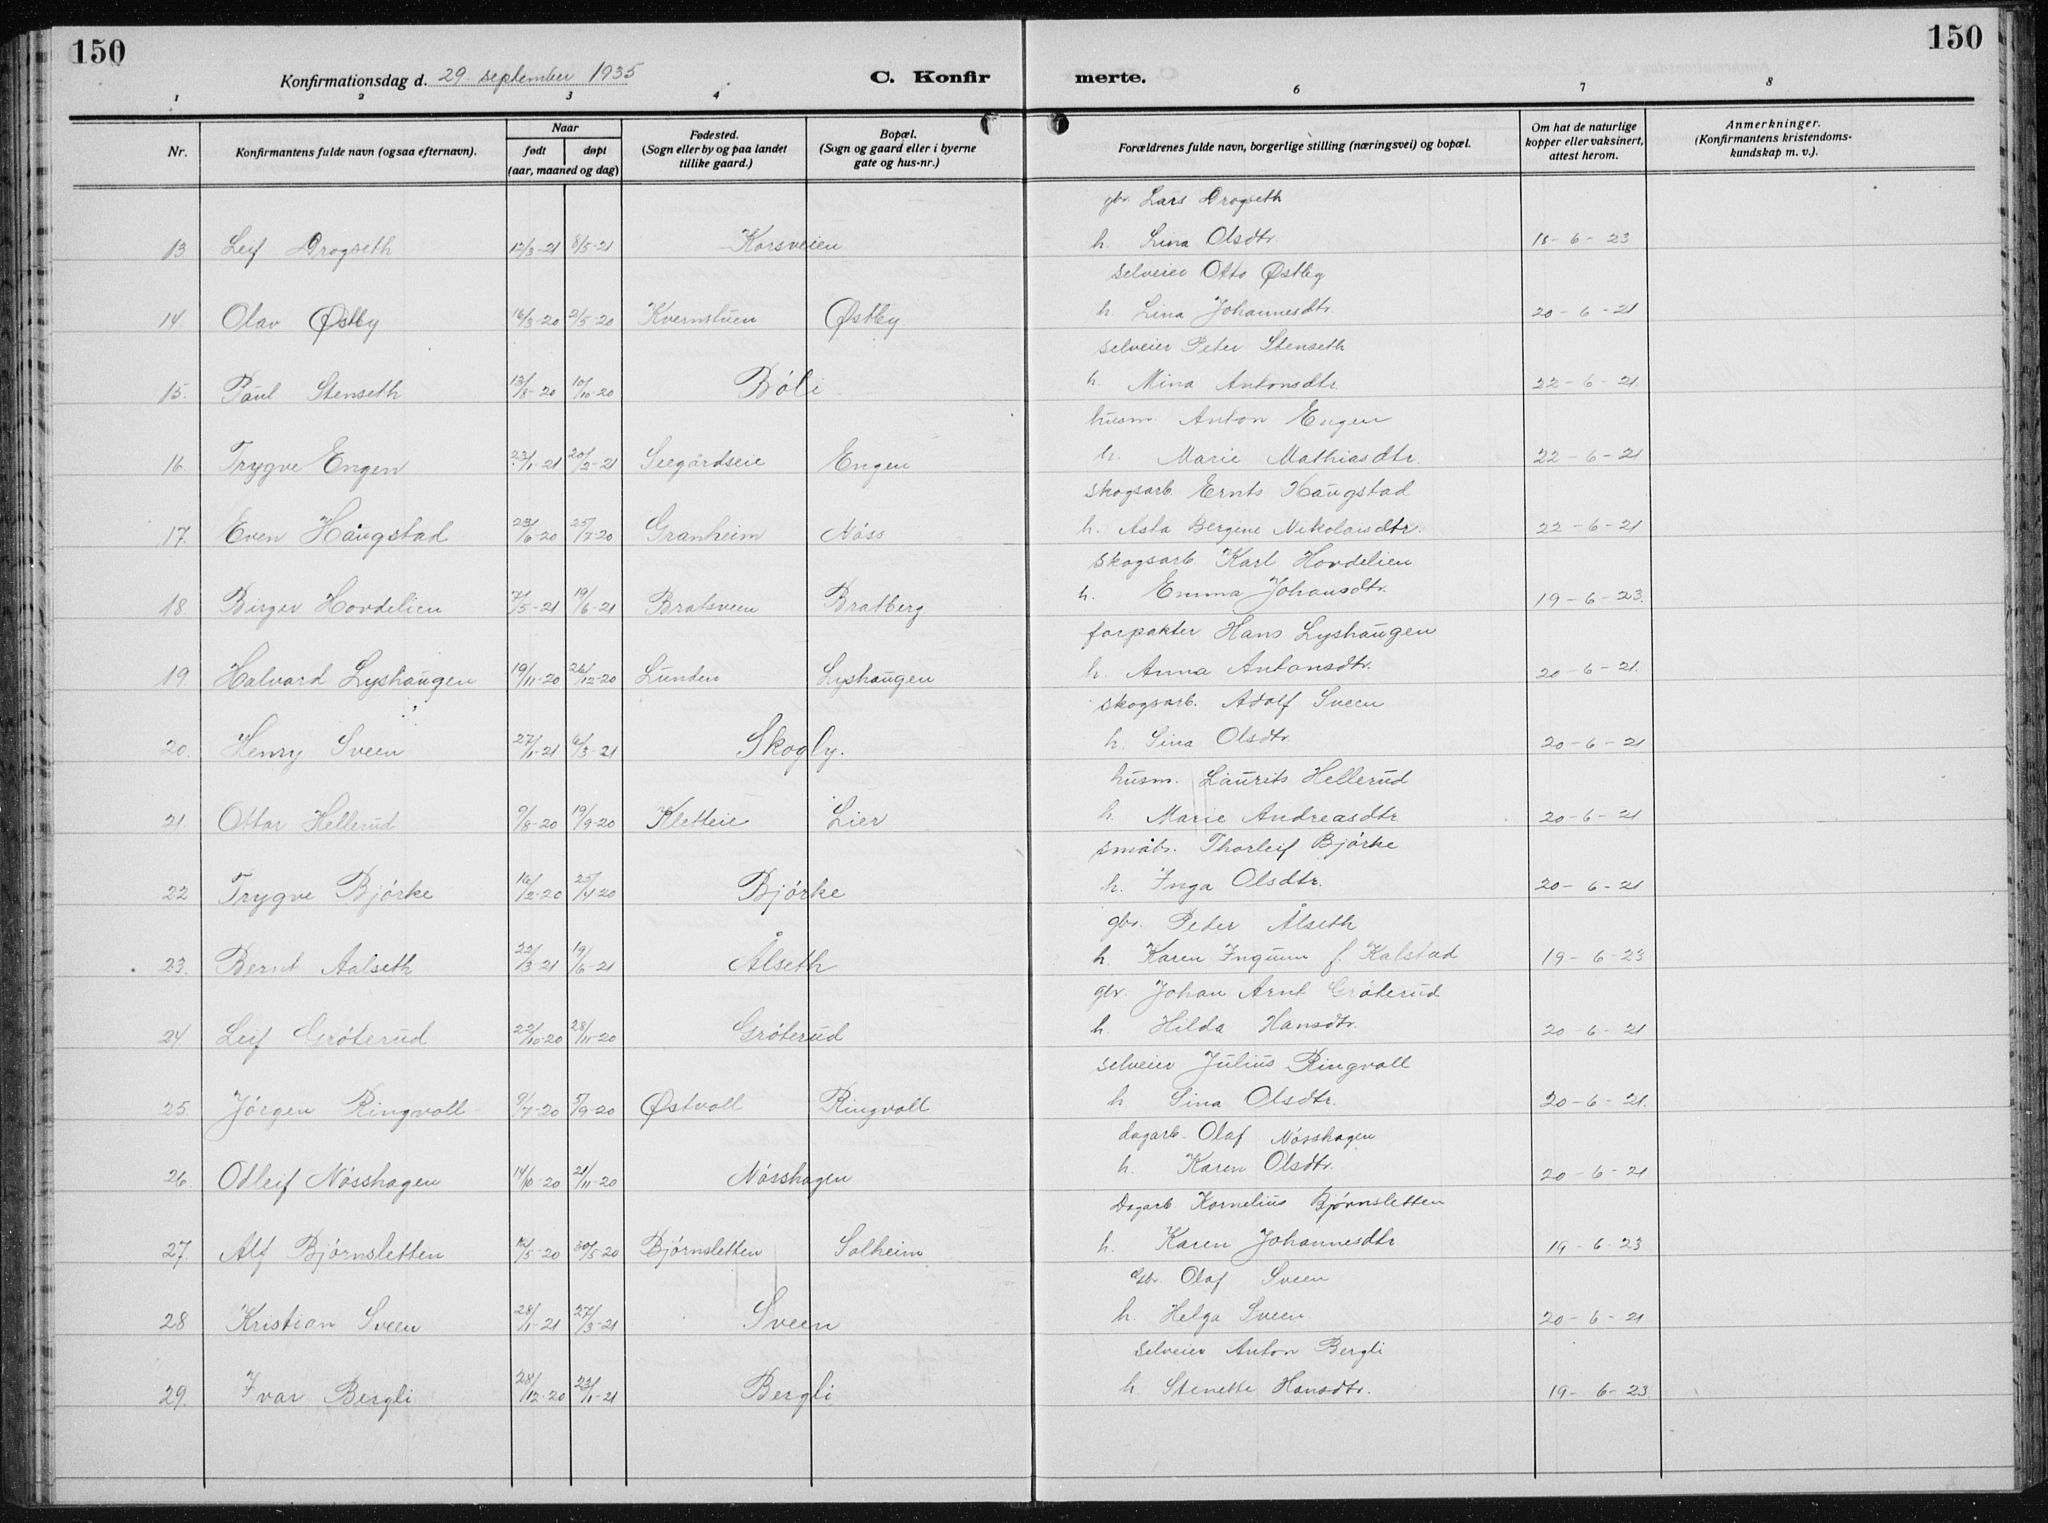 150
150
Konfirmationsdag d. 29. september 1935
C. Konfir merte.
1 2 3 4 5 6 7 8
Nr. Konfirmantens fulde navn (ogsaa efternavn). Naar født døpt (aar, maaned og dag) Fødested. (Sogn eller by og paa landet tillike gaard.) Bopæl. (Sogn og gaard eller i byerne gate og hus-nr.) Forældrenes fulde navn, borgerlige stilling (næringsvei) og bopæl. Om hat de naturlige kopper eller vaksinert, attest herom. Anmerkninger. (Konfirmantens kristendoms-kundskap m. v.).
gbr. Lars Drogseth
13 Leif Drogseth 12/3-21 8/5-21 Korsveien h. Lina Olsdtr. 18-6-23
selveier Otto Østby
14 Olav Østby 16/3-20 2/5-20 Kvernstuen Østby h. Lina Johannesdtr. 20-6-21
selveier Peter Stenseth
15. Paul Stenseth 13/8-20 10/10-20 Bóli h. Mina Antonsdtr. 22-6-21.
husm. Anton Engen
16. Trygve Engen 23/1-21 20/2-21 Seegårdseie Engen h. Marie Mathiasdtr. 22-6-21
skogsarb. Ernts Haugstad
17. Even Haugstad 23/6-20 25/7-20 Granheim Nóss h. Asta Bergine Nikolaisdtr. 22-6-21
skogsarb. Karl Hovdelien
18. Birger Hovdelien 7/5-21 19/6-21 Bratsveen Bratberg h. Emma Johansdtr. 19-6-23.
forpakter Hans Lyshaugen
19. Halvard Lyshaugen 19/11-20 26/12-20 Lunden Lyshaugen h. Anna Antonsdtr. 20-6-21.
skogsarb. Adolf Sveen
20. Henry Sveen 27/1-21 6/3-21 Skogly. h. Sina Olsdtr. 20-6-21
husm. Laurits Hellerud
21. Ottar Hellerud 9/8-20 19/9-20 Kletteie Lier h. Marie Andreasdtr 20-6-21
småbr. Thorleif Bjórke
22 Trygve Bjórke 16/2-20 25/4-20 Bjórke h. Inga Olsdtr. 20-6-21
gbr. Peder Ålseth
23. Bernt Aalseth 22/3-21 19/6-21 Ålseth h. Karen Ingunn f. Kalstad 19-6-23
gbr. Johan Arnt Gróterud
24. Leif Gróterud 22/10-20 28/11-20 Gróterud h. Hilda Hansdtr. 20-6-21
selveier Julius Ringvoll
25. Jórgen Ringvoll 9/7-20 5/9-20 Østvoll Ringvoll h Sina Olsdtr. 20-6-21.
dagarb. Olaf Nósshagen
26. Odleif Nósshagen 14/10-20 21/11-20 Nósshagen h. Karen Olsdtr. 20-6-21
Dagarb Kornelius Bjørnsletten
27. Alf Bjórnsletten 12/5-20 30/5-20 Bjórnsletten Solheim h. Karen Johannesdtr 19-6-23
Gbr. Olaf Sveen
28 Kristian Sveen 28/1-21 27/3-21 Sveen h. Helga Sveen 20-6-21
selveier Anton Bergli
29. Ivar Bergli 28/12-20 23/1-21 Bergli h. Stenette Hansdtr. 19-6-23.